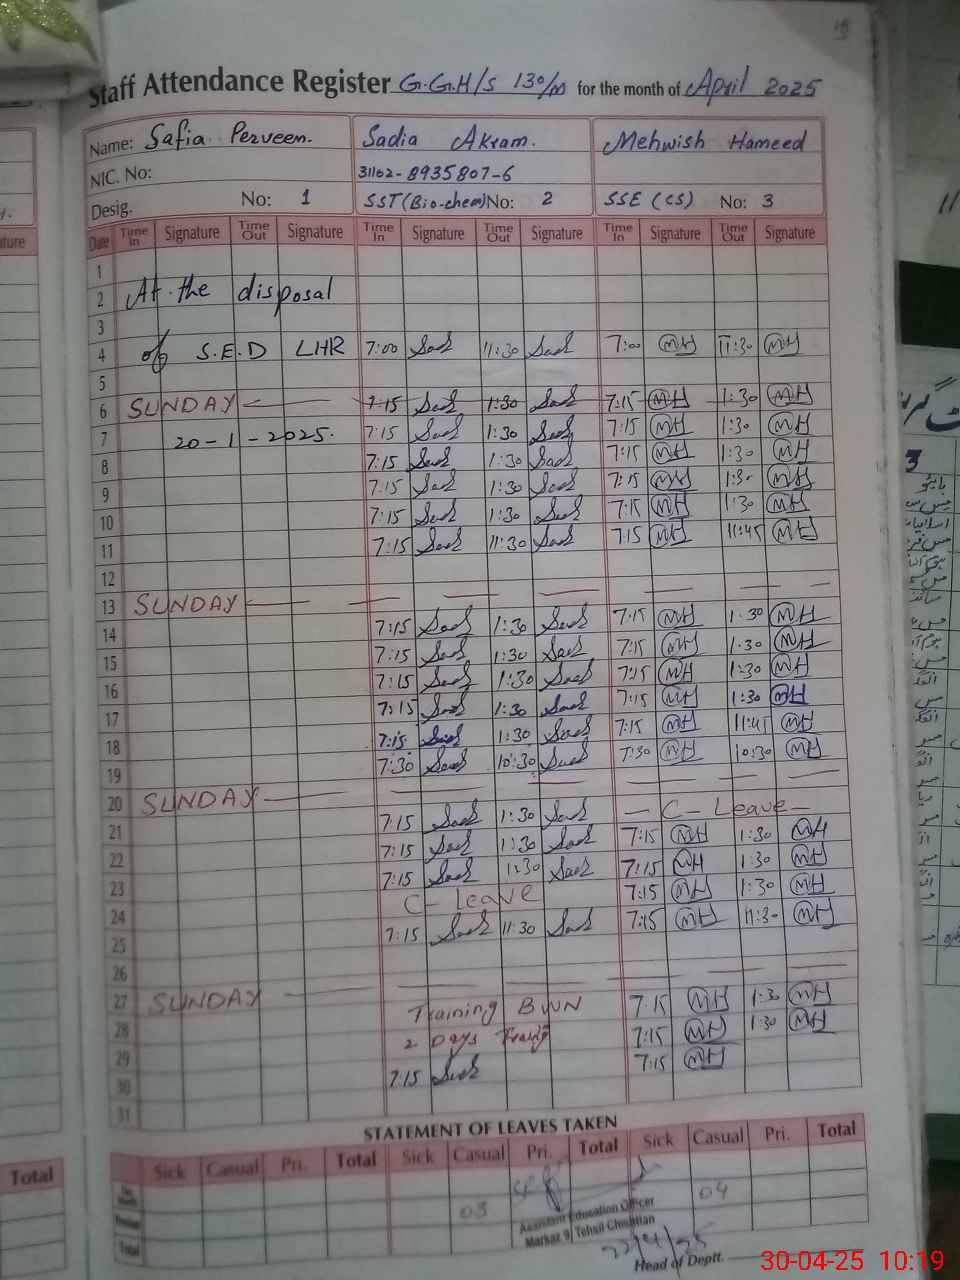 Staff Attendance Register G.G.H/S 130/M for the month of April 2025
Name: Safia Perveen. Sadia Akram. Mehwish Hameed
NIC. No: 31102-8935807-6
Desig. No: 1 SST(Bio-chem) No: 2 SSE (CS) No: 3
Date Time In Signature Time Out Signature Time In Signature Time Out Signature Time In Signature Time Out Signature
1
2 At the disposal
3
4 of S.E.D LHR 7:00 Sad 11:30 Sad 7:00 MH 11:30 MH
5
6 SUNDAY 7:15 Sad 1:30 Sad 7:15 MH 1:30 MH
7 20-1-2025. 7:15 Sad 1:30 Sad 7:15 MH 1:30 MH
8 7:15 Sad 1:30 Sad 7:15 MH 1:30 MH
9 7:15 Sad 1:30 Sad 7:15 MH 1:30 MH
10 7:15 Sad 1:30 Sad 7:15 MH 1:30 MH
11 7:15 Sad 11:30 Sad 7:15 MH 11:45 MH
12
13 SUNDAY
14 7:15 Sad 1:30 Sad 7:15 MH 1:30 MH
15 7:15 Sad 1:30 Sad 7:15 MH 1:30 MH
16 7:15 Sad 1:30 Sad 7:15 MH 1:30 MH
17 7:15 Sad 1:30 Sad 7:15 MH 1:30 MH
18 7:15 Sad 1:30 Sad 7:15 MH 11:45 MH
19 7:30 Sad 10:30 Sad 7:30 MH 10:30 MH
20 SUNDAY
21 7:15 Sad 1:30 Sad C-Leave
22 7:15 Sad 1:30 Sad 7:15 MH 1:30 MH
23 7:15 Sad 1:30 Sad 7:15 MH 1:30 MH
24 C-Leave 7:15 MH 1:30 MH
25 7:15 Sad 11:30 Sad 7:15 MH 11:30 MH
26
27 SUNDAY
28 Training BWN 7:15 MH 1:30 MH
29 2 Days Training 7:15 MH 1:30 MH
30 7:15 Sad 7:15 MH
31
STATEMENT OF LEAVES TAKEN
Total Sick Casual Pri. Total Sick Casual Pri. Total Sick Casual Pri. Total
03 04
Total
Assistant Education Officer
Markaz 9 Tehsil Chishtian
22/4/25
Head of Deptt.
30-04-25 10:19